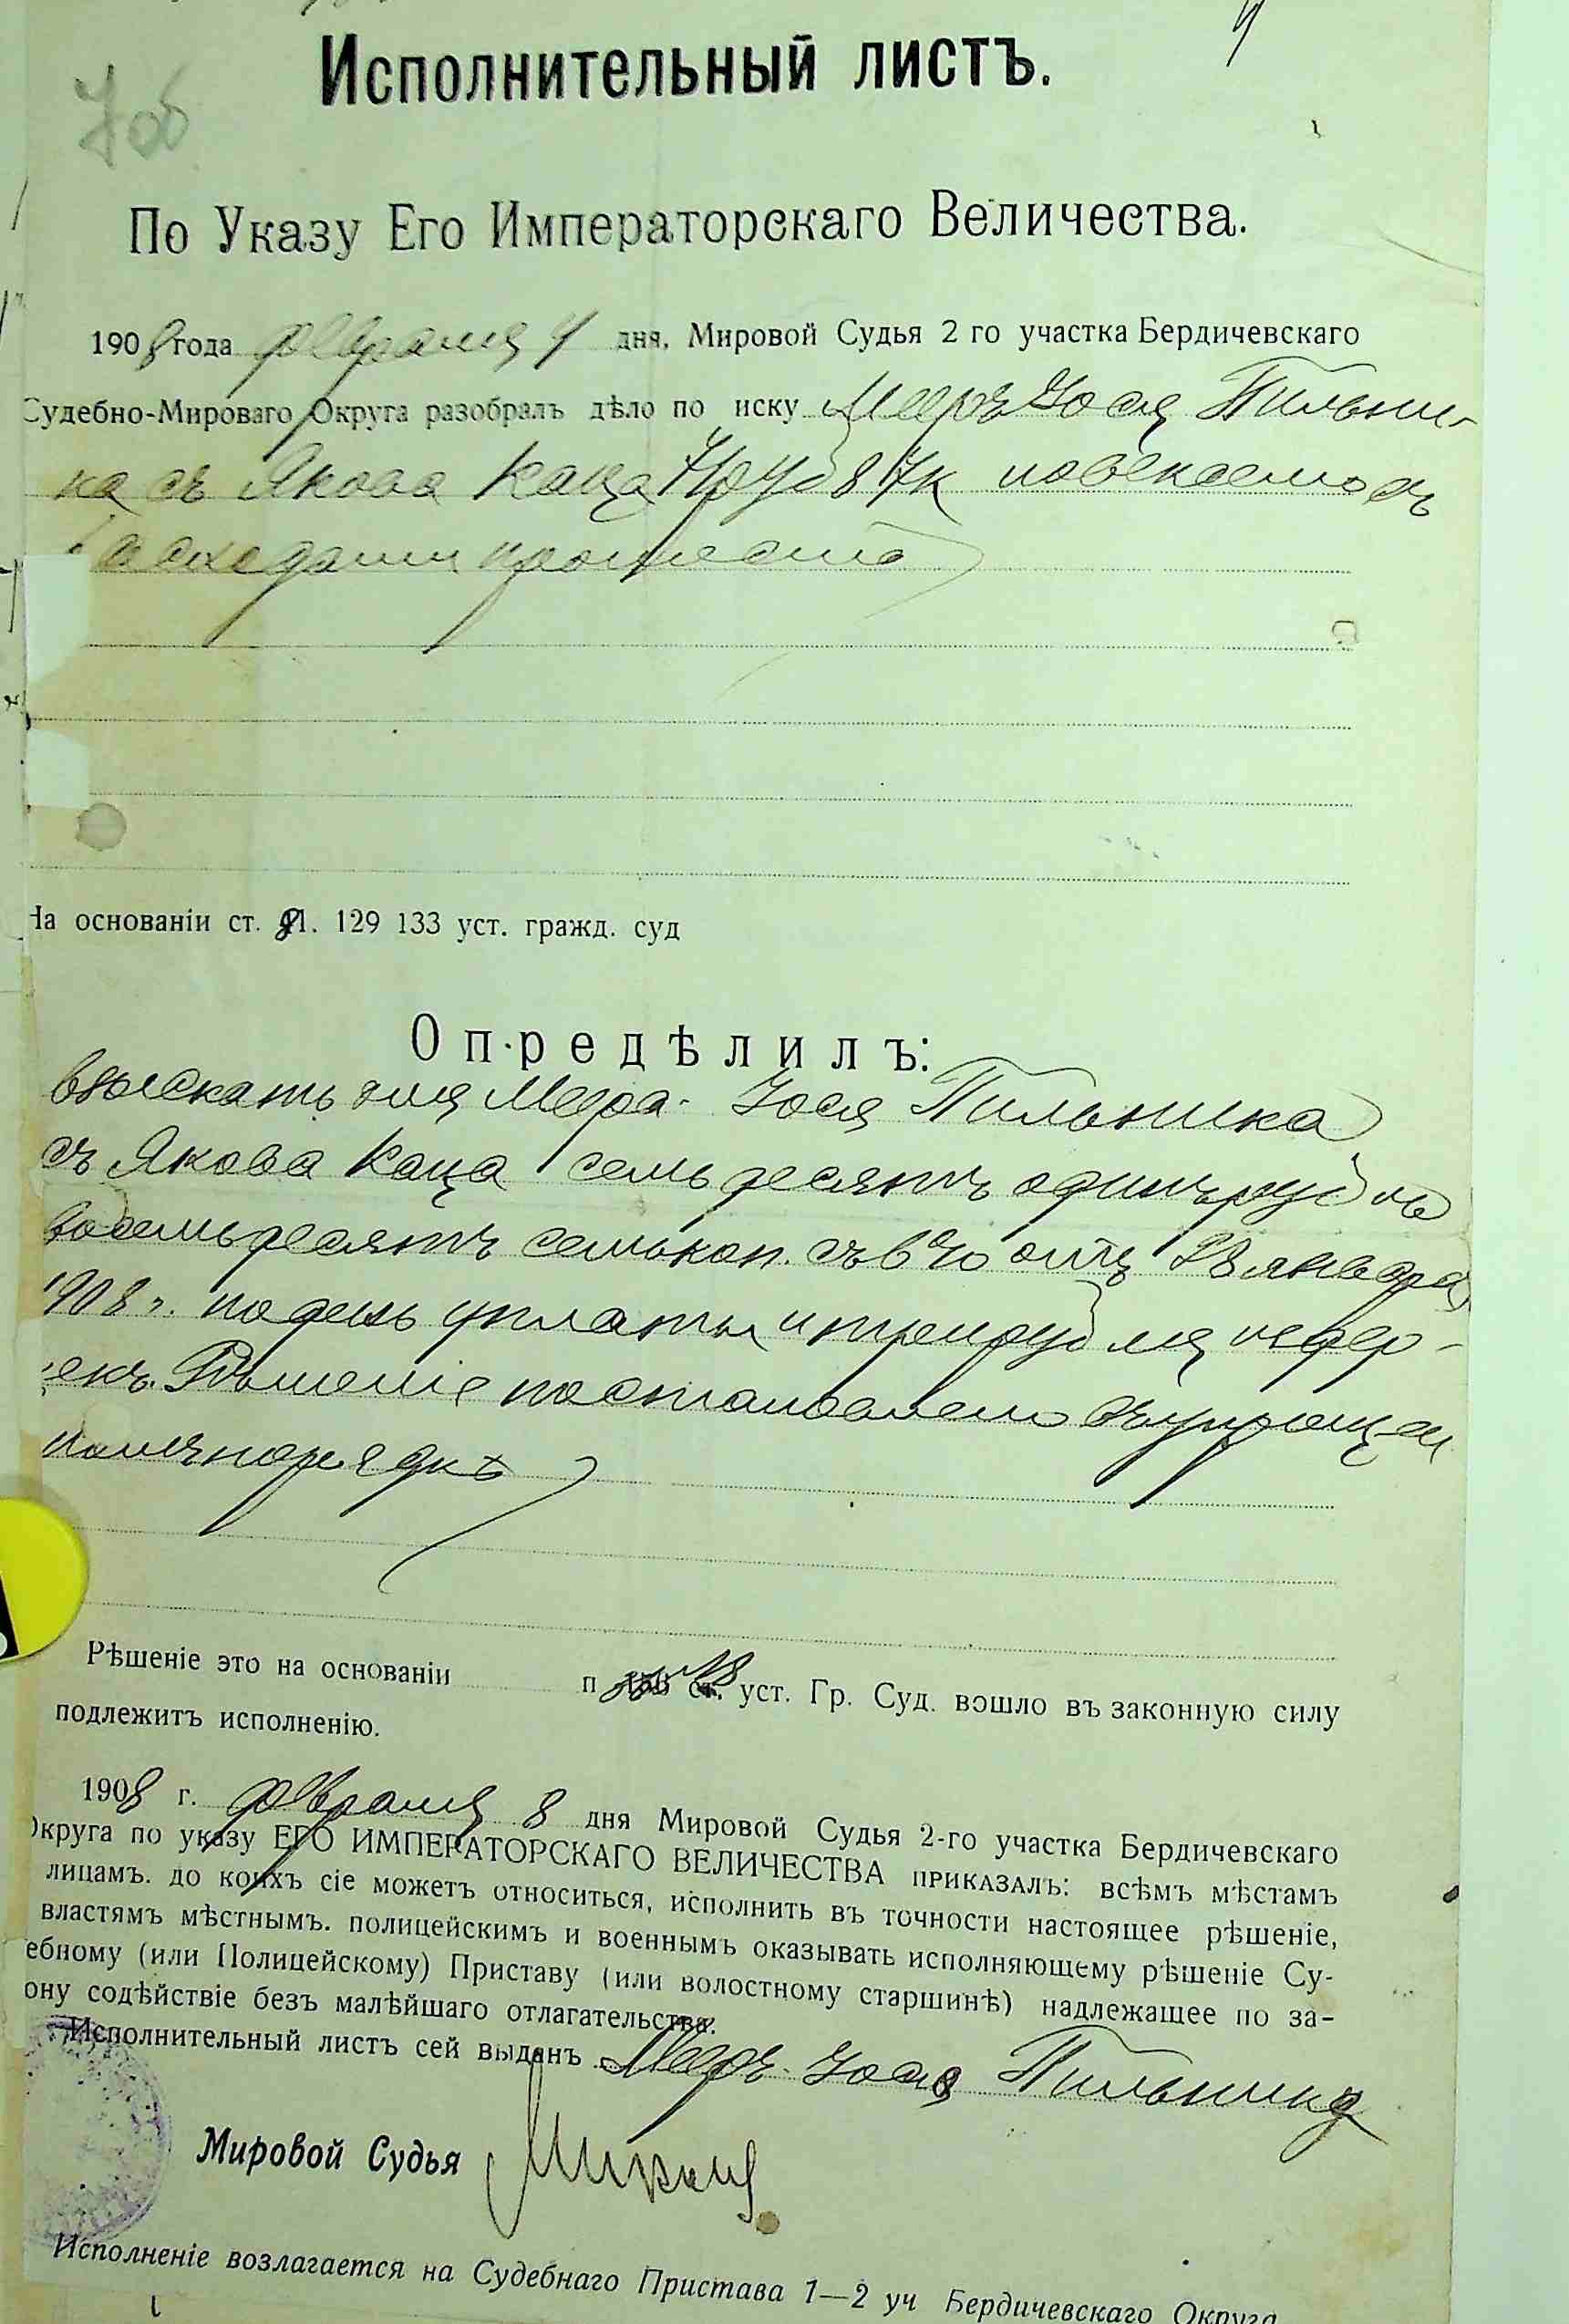 Исполнительный листъ.
По Указу Его Императорскаго Величества.
1908 года февраля 4 дня, Мировой Судья 2 го участка Бердичевскаго
Судебно-Мироваго Округа разобралъ дѣло по иску Мееръ Іося Пильни-
ка съ Якова Каца 71 руб 87 к по векселю съ
расходами протеста
На основаніи ст. 81. 129 133 уст. гражд. суд
Опредѣлилъ:
взыскать для Меера-Іося Пильника
съ Якова Каца семьдесятъ одинъ руб
восемьдесятъ семь коп. съ % отъ января
1908 г. по день уплаты и три руб издер-
жекъ. Рѣшеніе постановлено въ упрощен
номъ порядкѣ
Рѣшеніе это на основаніи п ст. уст. Гр. Суд. вошло въ законную силу
подлежитъ исполненію.
1908 г. февраля 8 дня Мировой Судья 2-го участка Бердичевскаго
Округа по указу ЕГО ИМПЕРАТОРСКАГО ВЕЛИЧЕСТВА ПРИКАЗАЛЪ: всѣмъ мѣстамъ
лицамъ. до коихъ сіе можетъ относиться, исполнить въ точности настоящее рѣшеніе,
властямъ мѣстнымъ. полицейскимъ и военнымъ оказывать исполняющему рѣшеніе Су-
ебному (или Полицейскому) Приставу (или волостному старшинѣ) надлежащее по за-
ону содѣйствіе безъ малѣйшаго отлагательства.
Исполнительный листъ сей выданъ Мееръ-Іося Пильника
Мировой Судья
Исполненіе возлагается на Судебнаго Пристава 1—2 уч Бердичевскаго Округа